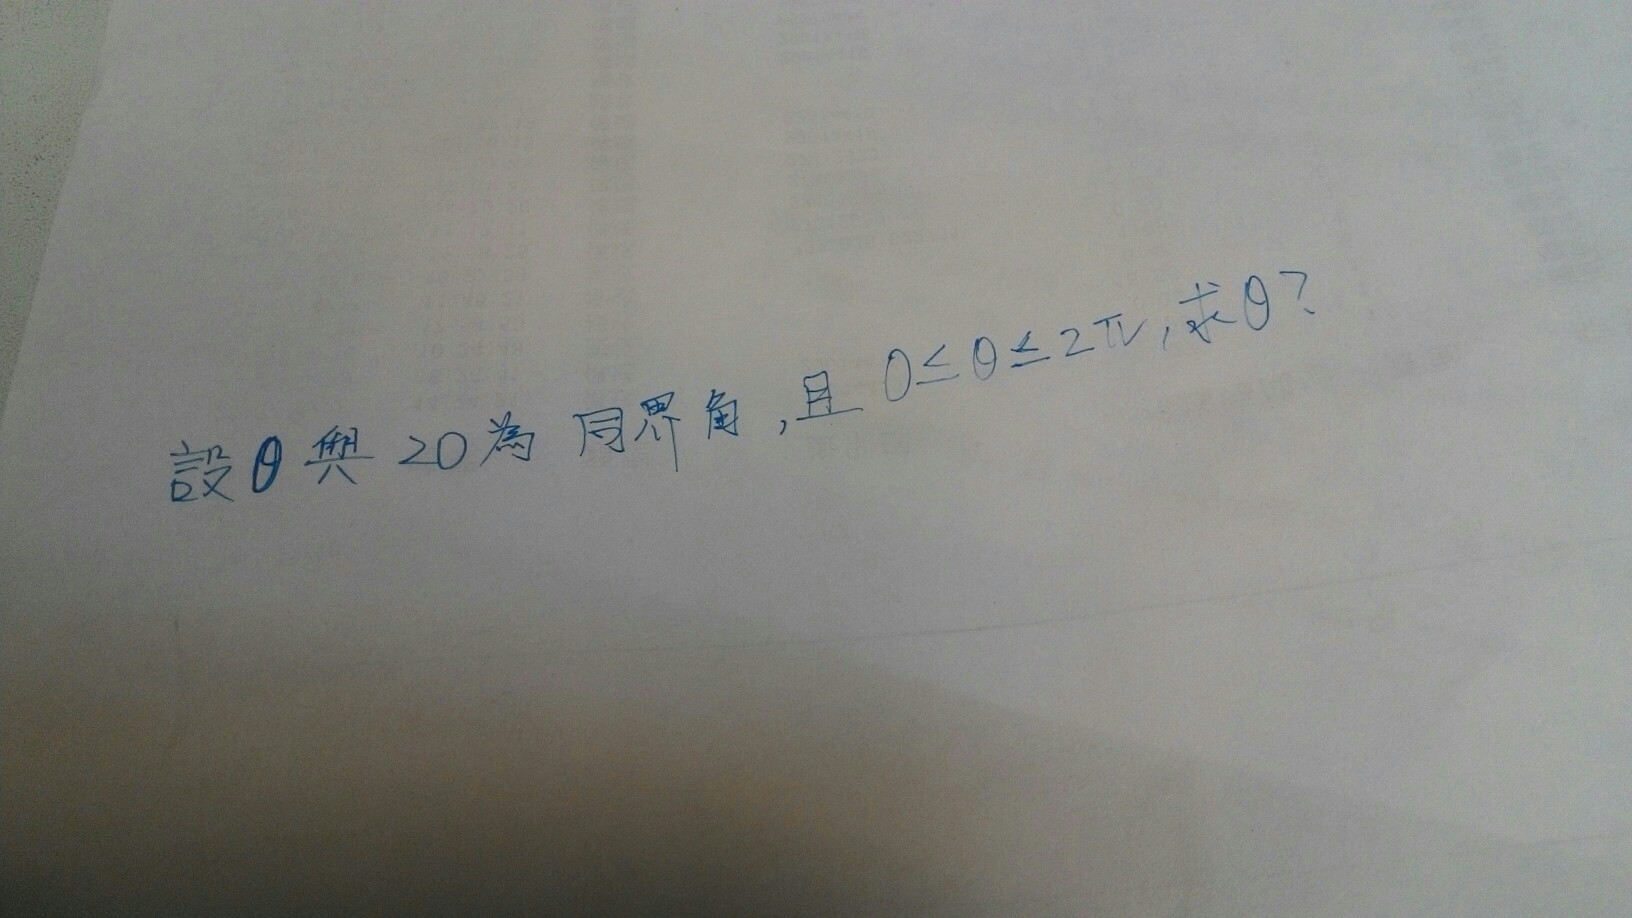 設θ與20為同界角,且0≤θ≤2π,求θ?